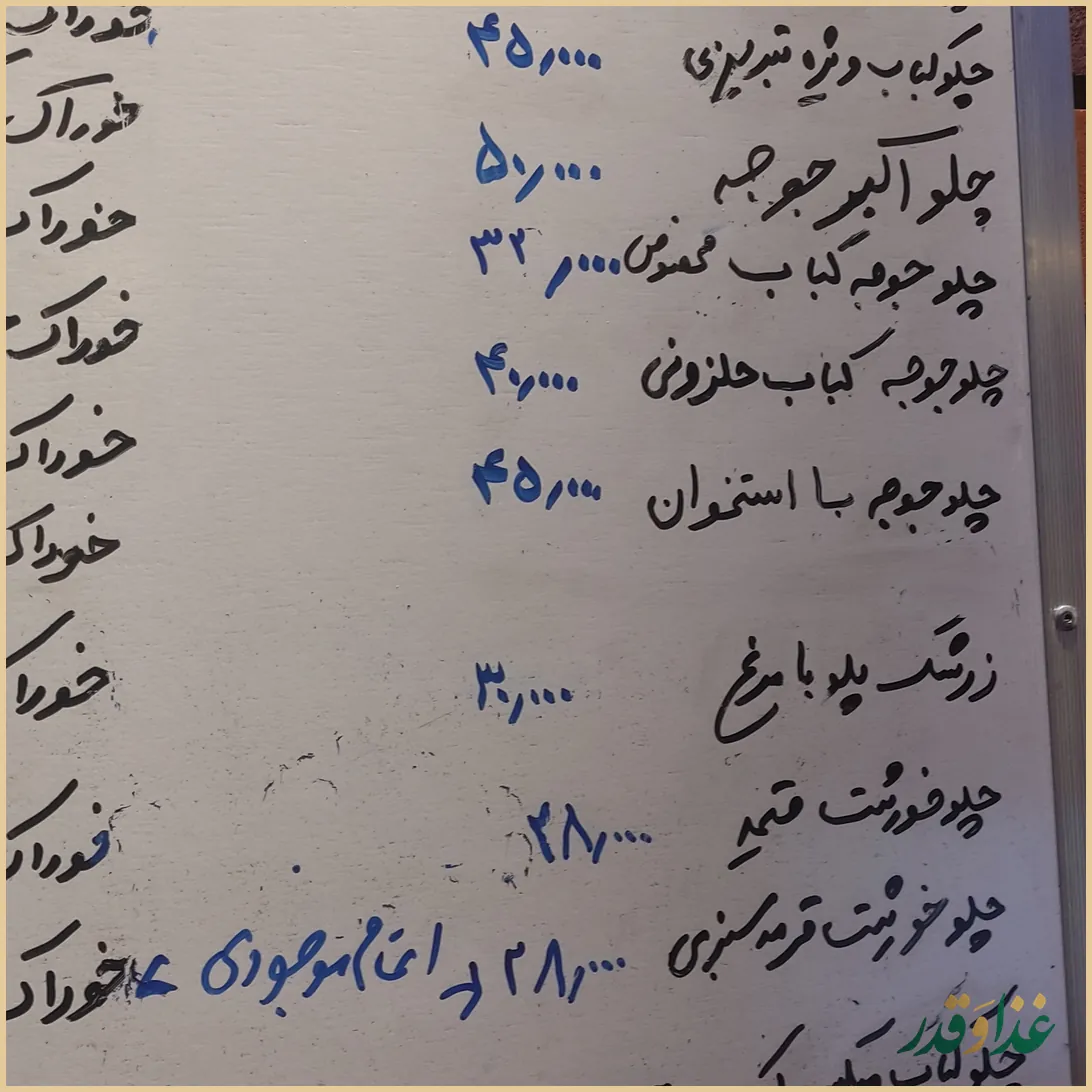 چلوکباب ویژه تبریزی ۴۵٫۰۰۰
چلو اکبر جوجه ۵۰٫۰۰۰ خوراک
چلو جوجه کباب مخصوص ۳۲٫۰۰۰ خوراک
چلو جوجه کباب حلزونی ۴۰٫۰۰۰ خوراک
چلو جوجه با استخوان ۴۵٫۰۰۰ خوراک
خوراک
زرشک پلو با مرغ ۳۰٫۰۰۰ خورا
چلو خورشت قیمه ۲۸٫۰۰۰ خورا
چلو خورشت قرمه سبزی ۲۸٫۰۰۰ اتمام موجودی خوراک
چلوکباب
غذا وَ قدر